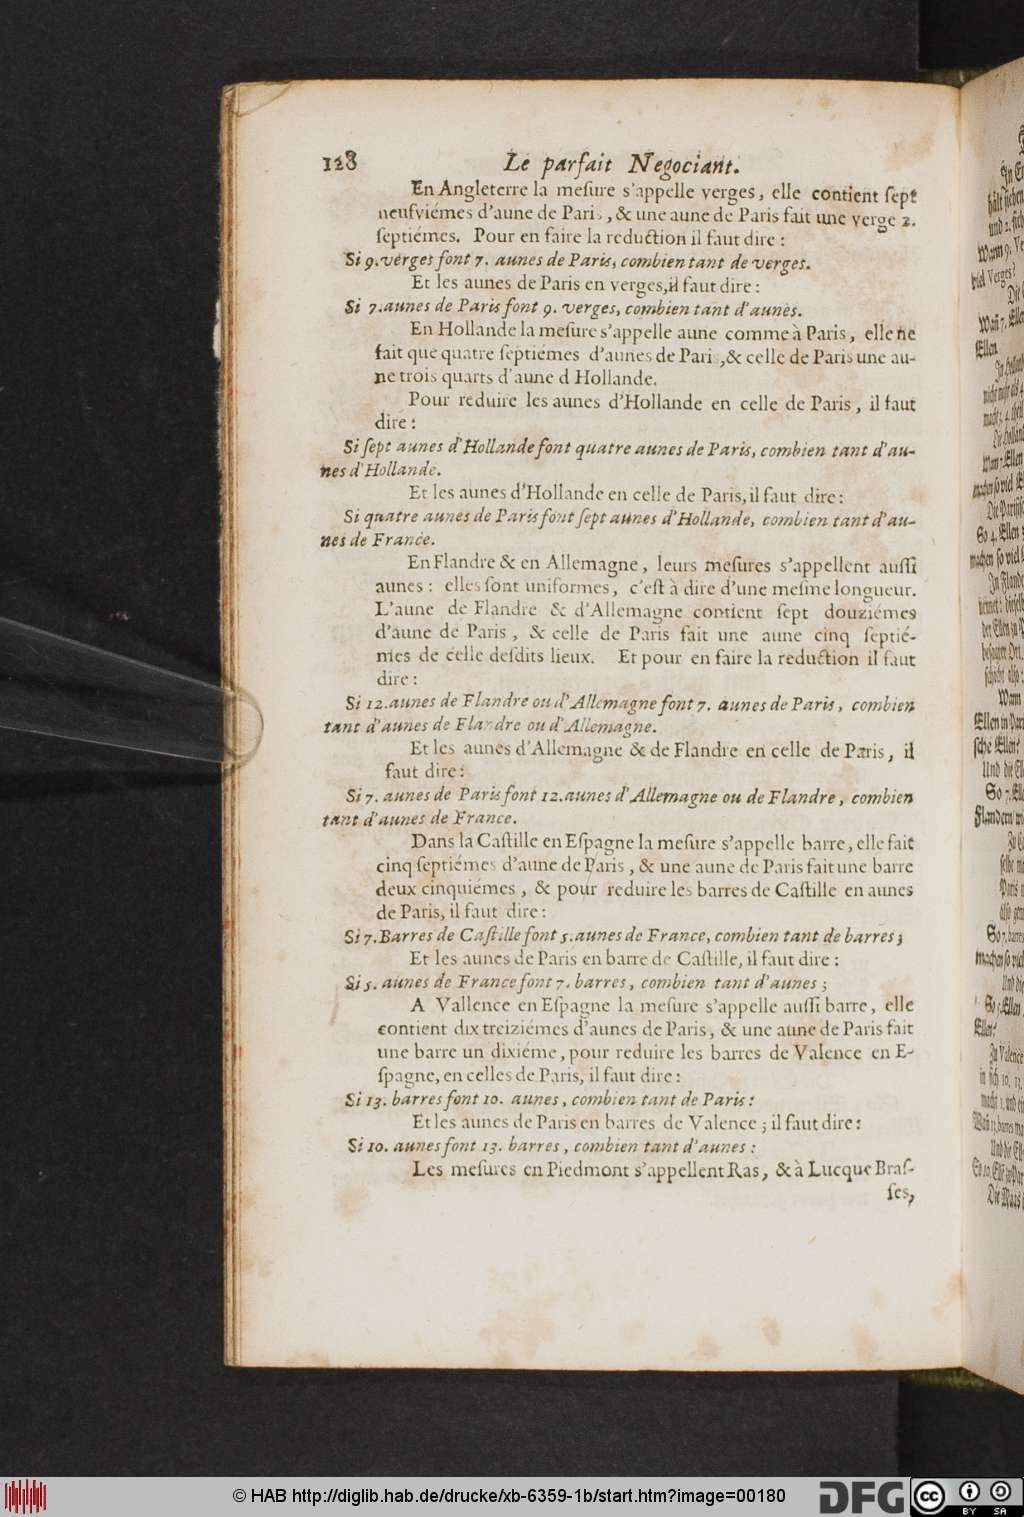 128 Le parfait Negociant.
En Angleterre la meſure s'appelle verges, elle contient ſept
neufviémes d'aune de Paris, & une aune de Paris fait une verge 2.
ſeptiémes. Pour en faire la reduction il faut dire :
Si 9. verges font 7. aunes de Paris, combien tant de verges.
Et les aunes de Paris en verges, il faut dire :
Si 7. aunes de Paris font 9. verges, combien tant d'aunes.
En Hollande la meſure s'appelle aune comme à Paris, elle ne
fait que quatre ſeptiémes d'aunes de Paris, & celle de Paris une au-
ne trois quarts d'aune d Hollande.
Pour reduire les aunes d'Hollande en celle de Paris, il faut
dire :
Si ſept aunes d'Hollande font quatre aunes de Paris, combien tant d'au-
nes d'Hollande.
Et les aunes d'Hollande en celle de Paris, il faut dire :
Si quatre aunes de Paris font ſept aunes d'Hollande, combien tant d'au-
nes de France.
En Flandre & en Allemagne, leurs meſures s'appellent auſſi
aunes : elles ſont uniformes, c'eſt à dire d'une meſme longueur.
L'aune de Flandre & d'Allemagne contient ſept douziémes
d'aune de Paris, & celle de Paris fait une aune cinq ſeptié-
mes de celle deſdits lieux. Et pour en faire la reduction il faut
dire :
Si 12. aunes de Flandre ou d'Allemagne font 7. aunes de Paris, combien
tant d'aunes de Flandre ou d'Allemagne.
Et les aunes d'Allemagne & de Flandre en celle de Paris, il
faut dire :
Si 7. aunes de Paris font 12. aunes d'Allemagne ou de Flandre, combien
tant d'aunes de France.
Dans la Caſtille en Eſpagne la meſure s'appelle barre, elle fait
cinq ſeptiémes d'aune de Paris, & une aune de Paris fait une barre
deux cinquiémes, & pour reduire les barres de Caſtille en aunes
de Paris, il faut dire :
Si 7. Barres de Caſtille font 5. aunes de France, combien tant de barres ;
Et les aunes de Paris en barre de Caſtille, il faut dire :
Si 5. aunes de France font 7. barres, combien tant d'aunes ;
A Vallence en Eſpagne la meſure s'appelle auſſi barre, elle
contient dix treiziémes d'aunes de Paris, & une aune de Paris fait
une barre un dixiéme, pour reduire les barres de Valence en E-
ſpagne, en celles de Paris, il faut dire :
Si 13. barres font 10. aunes, combien tant de Paris :
Et les aunes de Paris en barres de Valence ; il faut dire :
Si 10. aunes font 13. barres, combien tant d'aunes :
Les meſures en Piedmont s'appellent Ras, & à Lucque Braſ-
ſes,
© HAB http://diglib.hab.de/drucke/xb-6359-1b/start.htm?image=00180
DFG
cc
BY SA